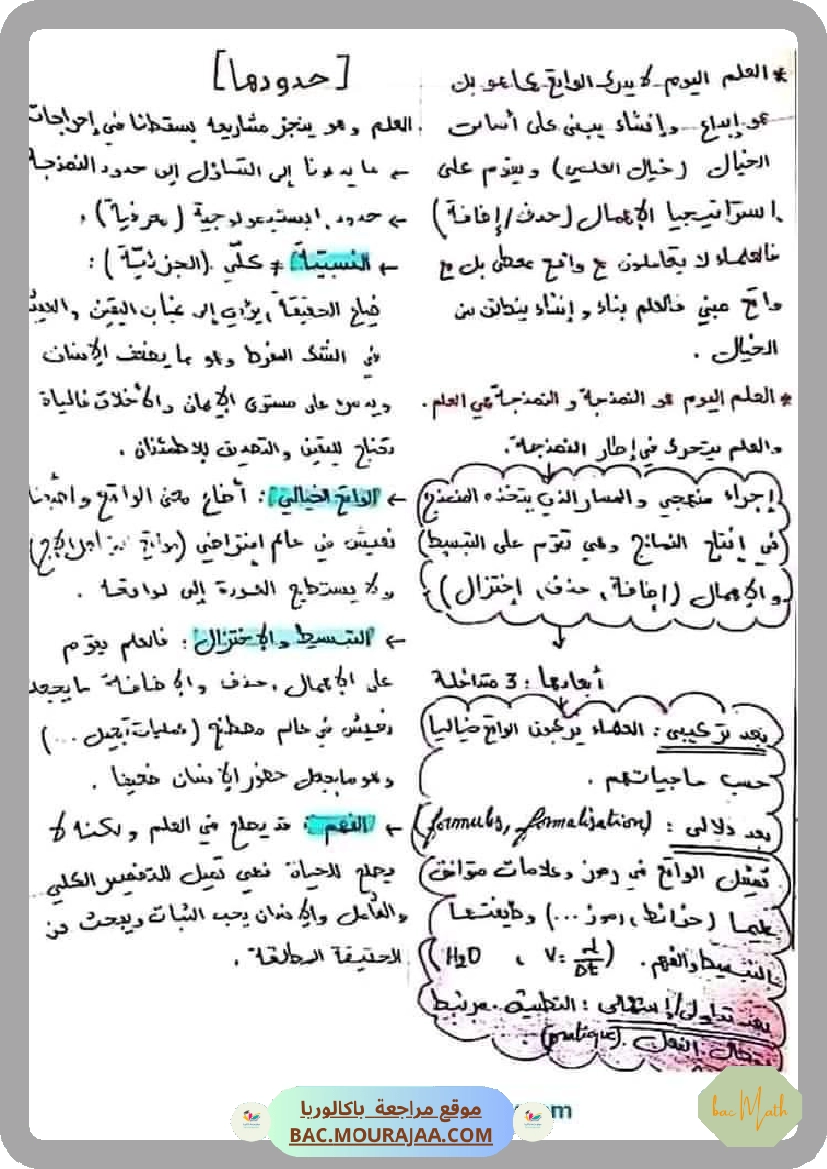 * العلم اليوم لا يدرك الواقع كما هو بل
هو إبداع وإنشاء يبنى على أساس
الخيال (خيال العلمي) ويقوم على
استراتيجيا الإهمال (حذف/إضافة)
فالعلماء لا يتعاملون مع واقع معطى بل مع
واقع مبني فالعلم بناء وإنشاء ينطلق من
الخيال.
* العلم اليوم هو النمذجة والنمذجة هي العلم.
والعلم يتحرك في إطار النمذجة.
إجراء منهجي والمسار الذي يتخذه المنمذج
في إنتاج النماذج وهي تقوم على التبسيط
والإهمال (إضافة، حذف، إختزال)
أبعادها: 3 متداخلة
بعد تركيبي: العلماء يركبون الواقع خياليا
حسب حاجياتهم.
بعد دلالي: (formules, formalisation)
تمثل الواقع في رموز وعلامات متوافق
عليها (خرائط، رموز ...) وظيفتها
التبسيط والفهم. (H₂O ، V = d/Dt)
بعد تداولي/إستعمالي: التطبيق مرتبط
(pratique)
[حدودها]
العلم وهو ينجز مشاريعه يسقطنا في إحراجات
← ما يدعونا إلى التساؤل إلى حدود النمذجة
← حدود ابستيمولوجية (معرفية):
← النسبية ≠ كلّي (الجزئيّة):
ضياع الحقيقة يؤدي إلى غياب اليقين والعيش
في الشك المفرط وهو ما يضعف الإنسان
على مستوى الإيمان والأخلاق فالحياة
تحتاج لليقين والتصديق للاطمئنان.
← الواقع الخيالي: أضاع معنى الواقع وأصبحنا
نعيش في عالم إفتراضي (مواقع)
ولا يستطيع العودة إلى لواقعه.
← التبسيط والإختزال: فالعلم يقوم
على الإهمال، حذف والإضافة ما يجعلنا
نعيش في عالم مصطنع (عمليات تجميل ...)
وهو ما يجعل حضور الإنسان ضعيفا.
← الفهم: قد يصلح في العلم ولكنه لا
يصلح للحياة فهي تميل للتفسير الكلي
والشامل والإنسان يحب الثبات ويبحث عن
الحقيقة المطلقة.
موقع مراجعة باكالوريا
BAC.MOURAJAA.COM
bac Math